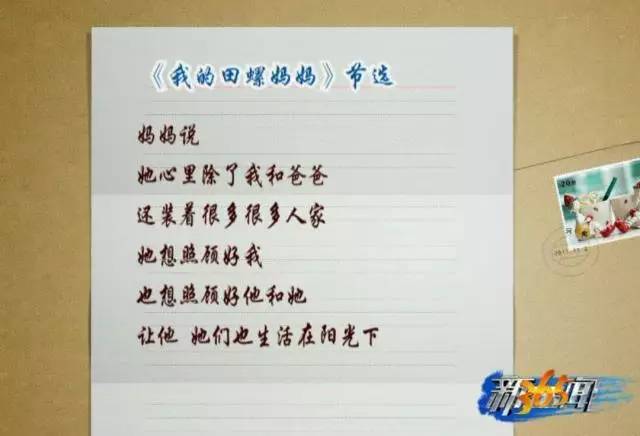 《我的田螺妈妈》节选
妈妈说
她心里除了我和爸爸
还装着很多很多人家
她想照顾好我
也想照顾好他和她
让他 她们也生活在阳光下
新365闻